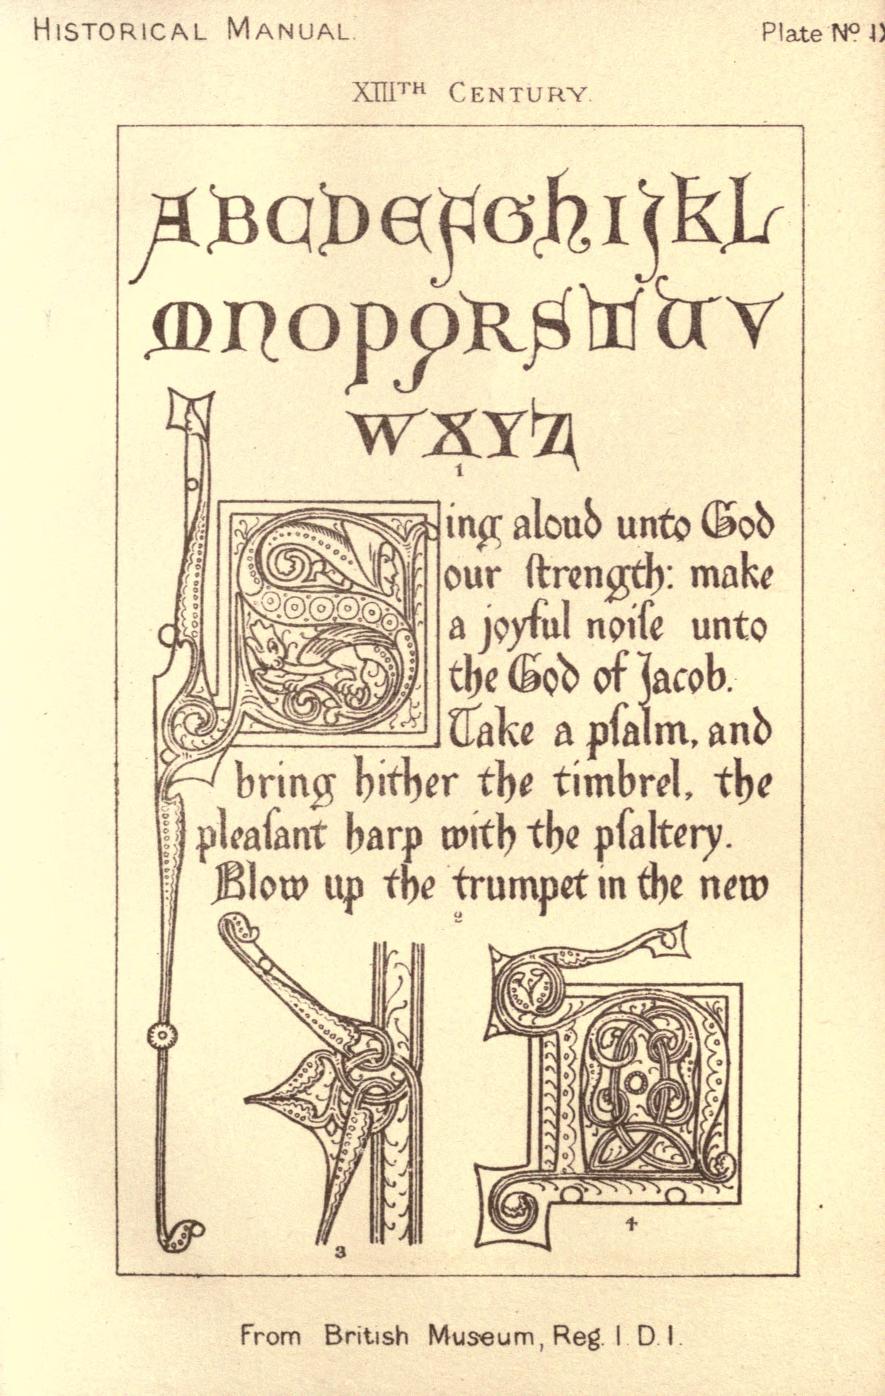 HISTORICAL MANUAL.
Plate Nº
XIIITH CENTURY.
ABCDEFGhIJKL
MNOPQRSTUV
WXYZ
1
Sing aloud unto God
our ſtrength: make
a joyful noiſe unto
the God of Jacob.
Take a pſalm, and
bring hither the timbrel, the
pleaſant harp with the pſaltery.
Blow up the trumpet in the new
2
3
4
From British Museum, Reg. I. D. I.